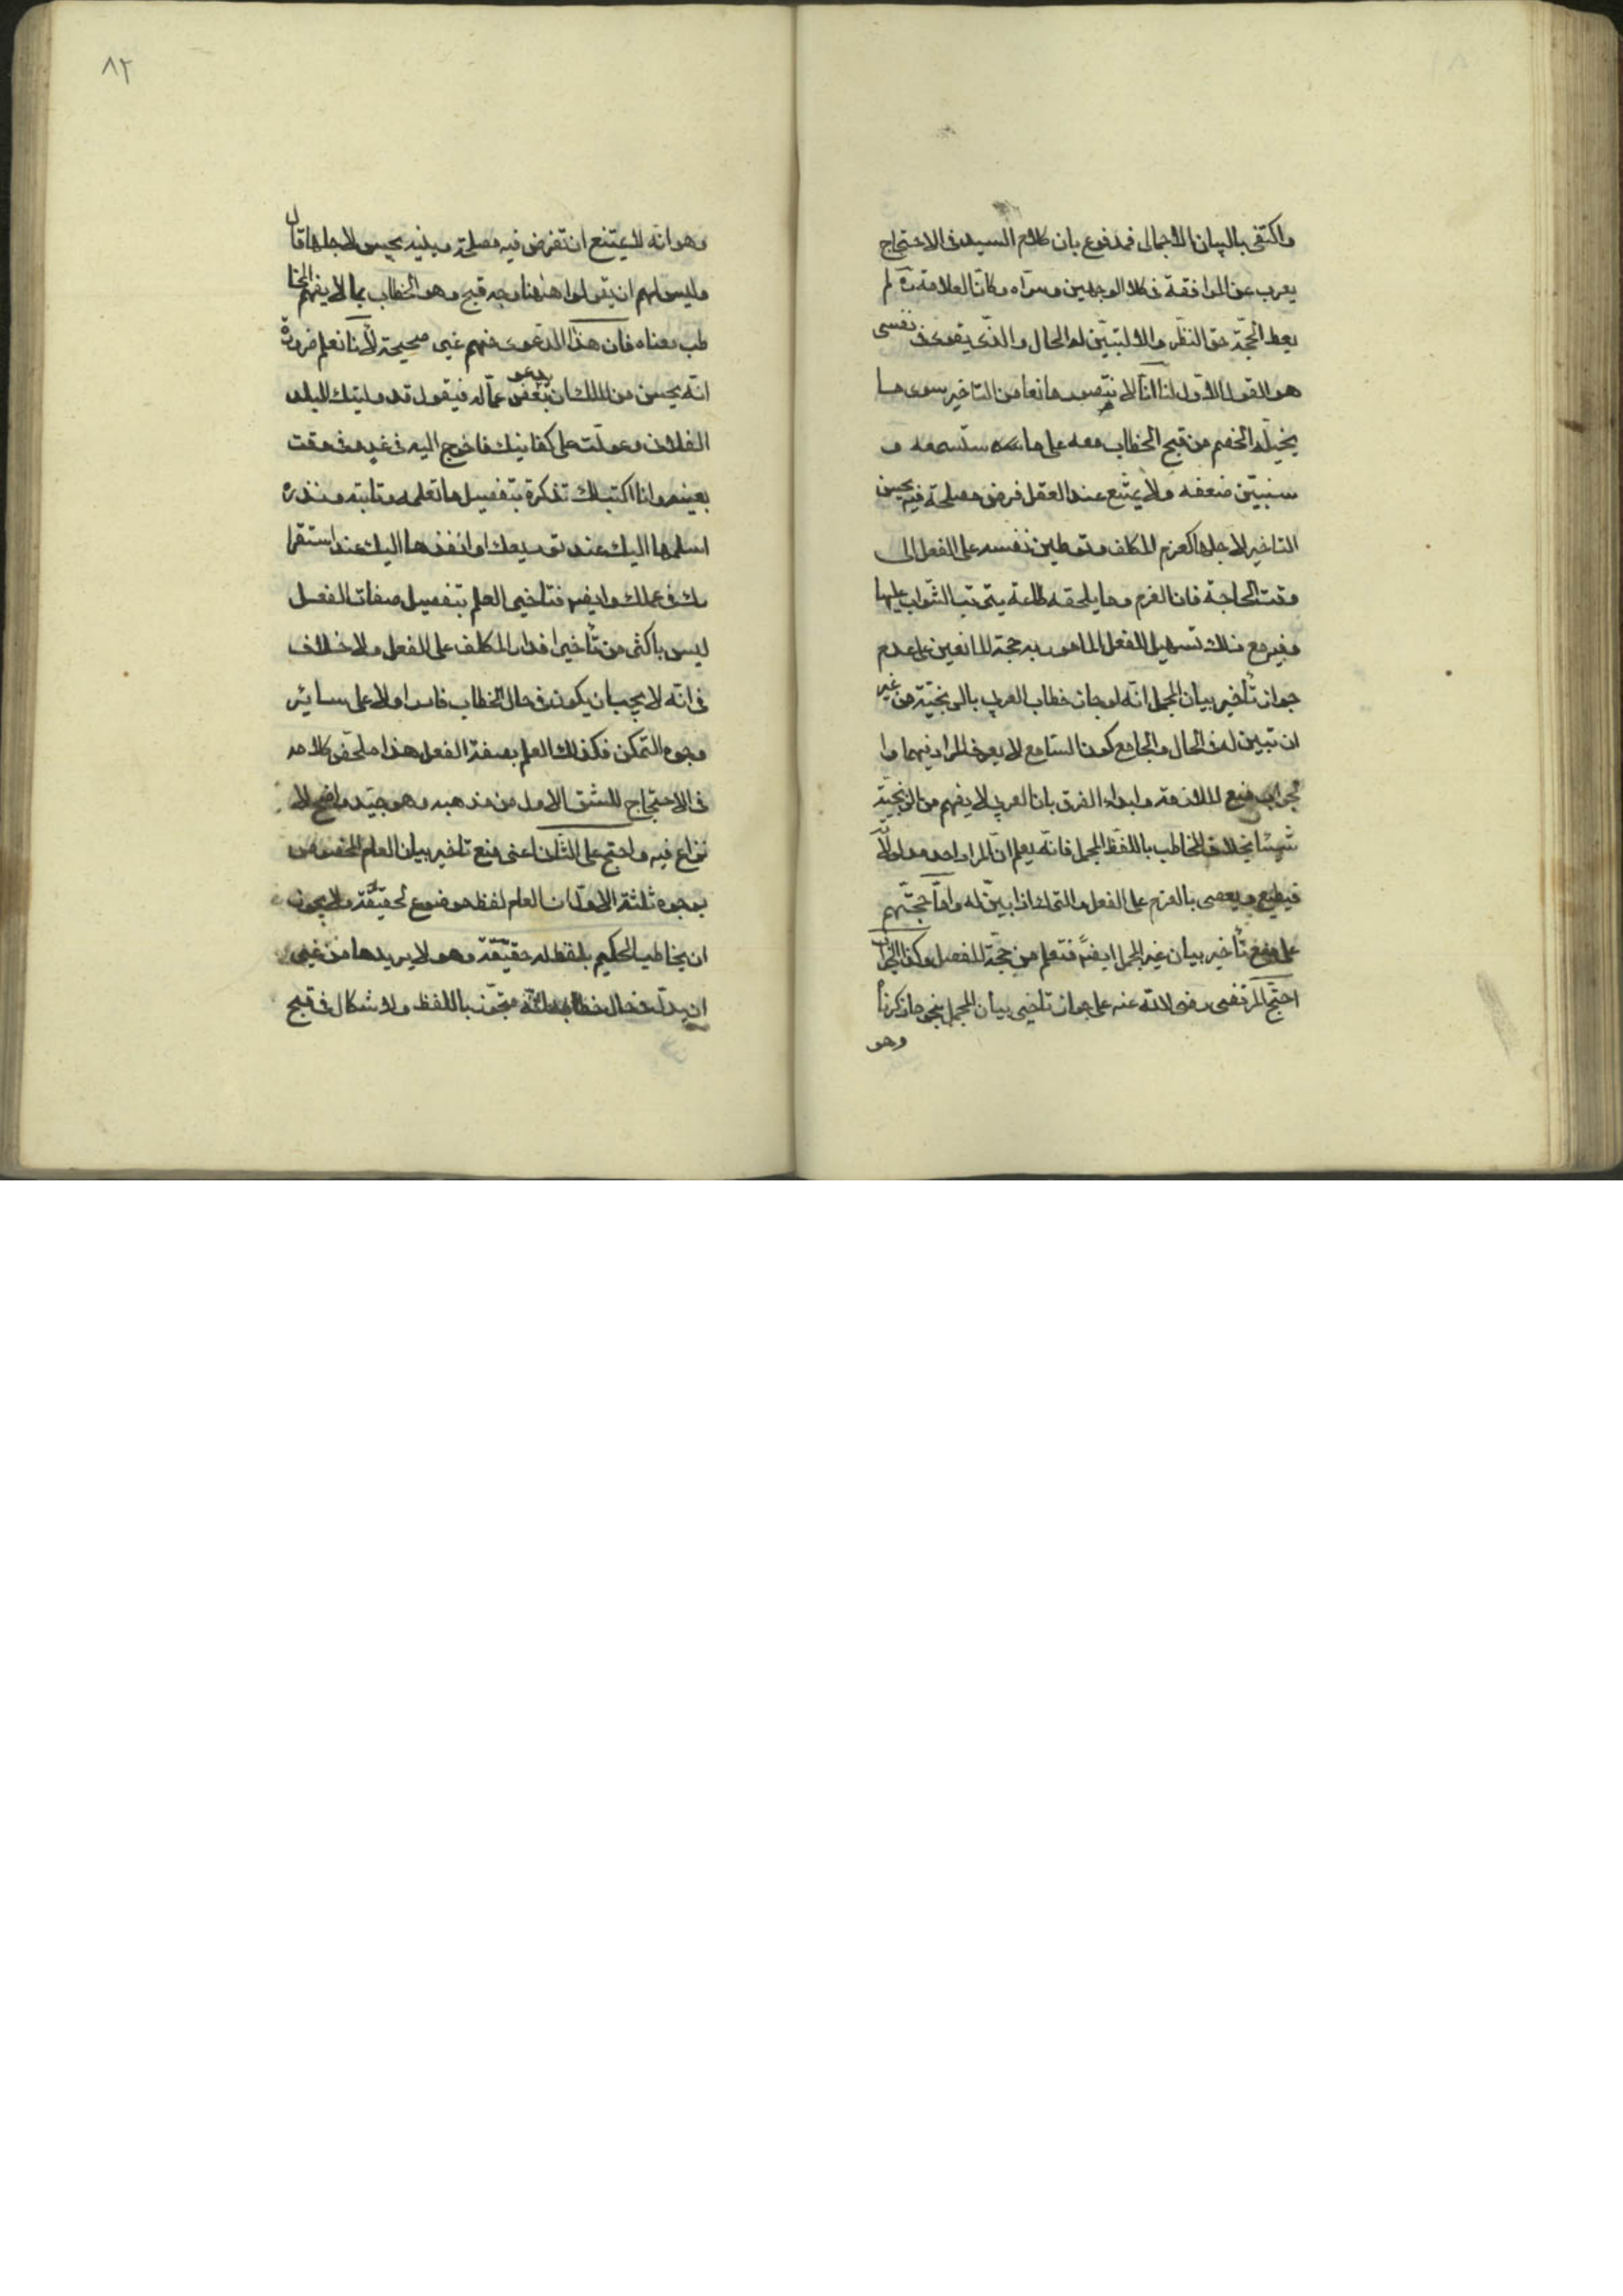 واكتفى بالبيان الاجمالى فمدفوع بان كلام السيد فى الاحتجاج
يعرب عن الموافقة فى كلا الوجهين وسواه وكان العلامة ره لم
يعط الحجة حق النظر والا لتبين له الحال والذى يقوى فى نفسى
هو القول الاول لنا انا لا نتصور مانعا من التاخير سوى ما
يخيله الخصم من قبح الخطاب معه على ما ستسمعه و
سنبين ضعفه ولا يمتنع عند العقل فرض مصلحة فيه يحسن
التاخير لاجلها كعزم المكلف وتوطين نفسه على الفعل الى
وقت الحاجة فان العزم وما يلحقه طاعة يترتب الثواب عليها
وفيه مع ذلك تسهيل للفعل المامور به حجة المانعين على عدم
جواز تأخير بيان المجمل انه لو جاز خطاب العربى بالزنجية من غير
ان تبين له فى الحال والجامع كون السامع لا يعرف المراد فيهما وا
لجواب منع الملازمة وابداء الفرق بان العربى لا يفهم من الزنجية
شيئا بخلاف المخاطب باللفظ المجمل فانه يعلم ان المراد احد مدلولاته
فيطيع ويعصى بالعزم على الفعل والترك اذا بين له واما حجتهم
على منع تأخير بيان غير المجمل ايضاً فتعلم من حجة المفصل وكذا الجواب
احتج المرتضى رضى الله عنه على جواز تاخير بيان المجمل بنحو ما ذكرنا
وهو
٨٢
وهو انه لا يمتنع ان تفرض فيه مصلحة دينيه يحسن لاجلها قال
وليس لهم ان يقولوا ههنا وجه قبح وهو الخطاب بما لا يفهم المخا
طب معناه فان هذا الدعوى منهم غير صحيحة لأنا نعلم ضرورة
انه يحسن من الملك ان يدعو بعض عماله فيقول قد وليتك البلد
الفلانى وعولت على كفايتك فاخرج اليه فى غد وفى وقت
بعينه وانا اكتب لك تذكرة بتفصيل ما تعلمه وتاتيه وتذره
اسلمها اليك عند توديعك او انفذها اليك عند استقرا
رك فى عملك وايضا فتاخير العلم بتفصيل صفات الفعل
ليس باكثر من تأخير اقدار المكلف على الفعل ولا خلاف
فى انه لا يجب ان يكون فى حال الخطاب قادرا ولا على سائر
وجوه التمكن فكذلك العلم بصفة الفعل هذا ملخص كلامه
فى الاحتجاج للشق الاول من مذهبه وهو جيد واضح لا
نزاع فيه واحتج على الثانى اعنى منع تاخير بيان العام المخصوص
بوجوه ثلثة الاول ان العام لفظ موضوع لحقيقة ولا يجوز
ان يخاطب الحكيم بلفظ له حقيقة وهو لا يريدها من غير
ان يدل فى حال خطابه انه متجوز باللفظ ولا اشكال فى قبح